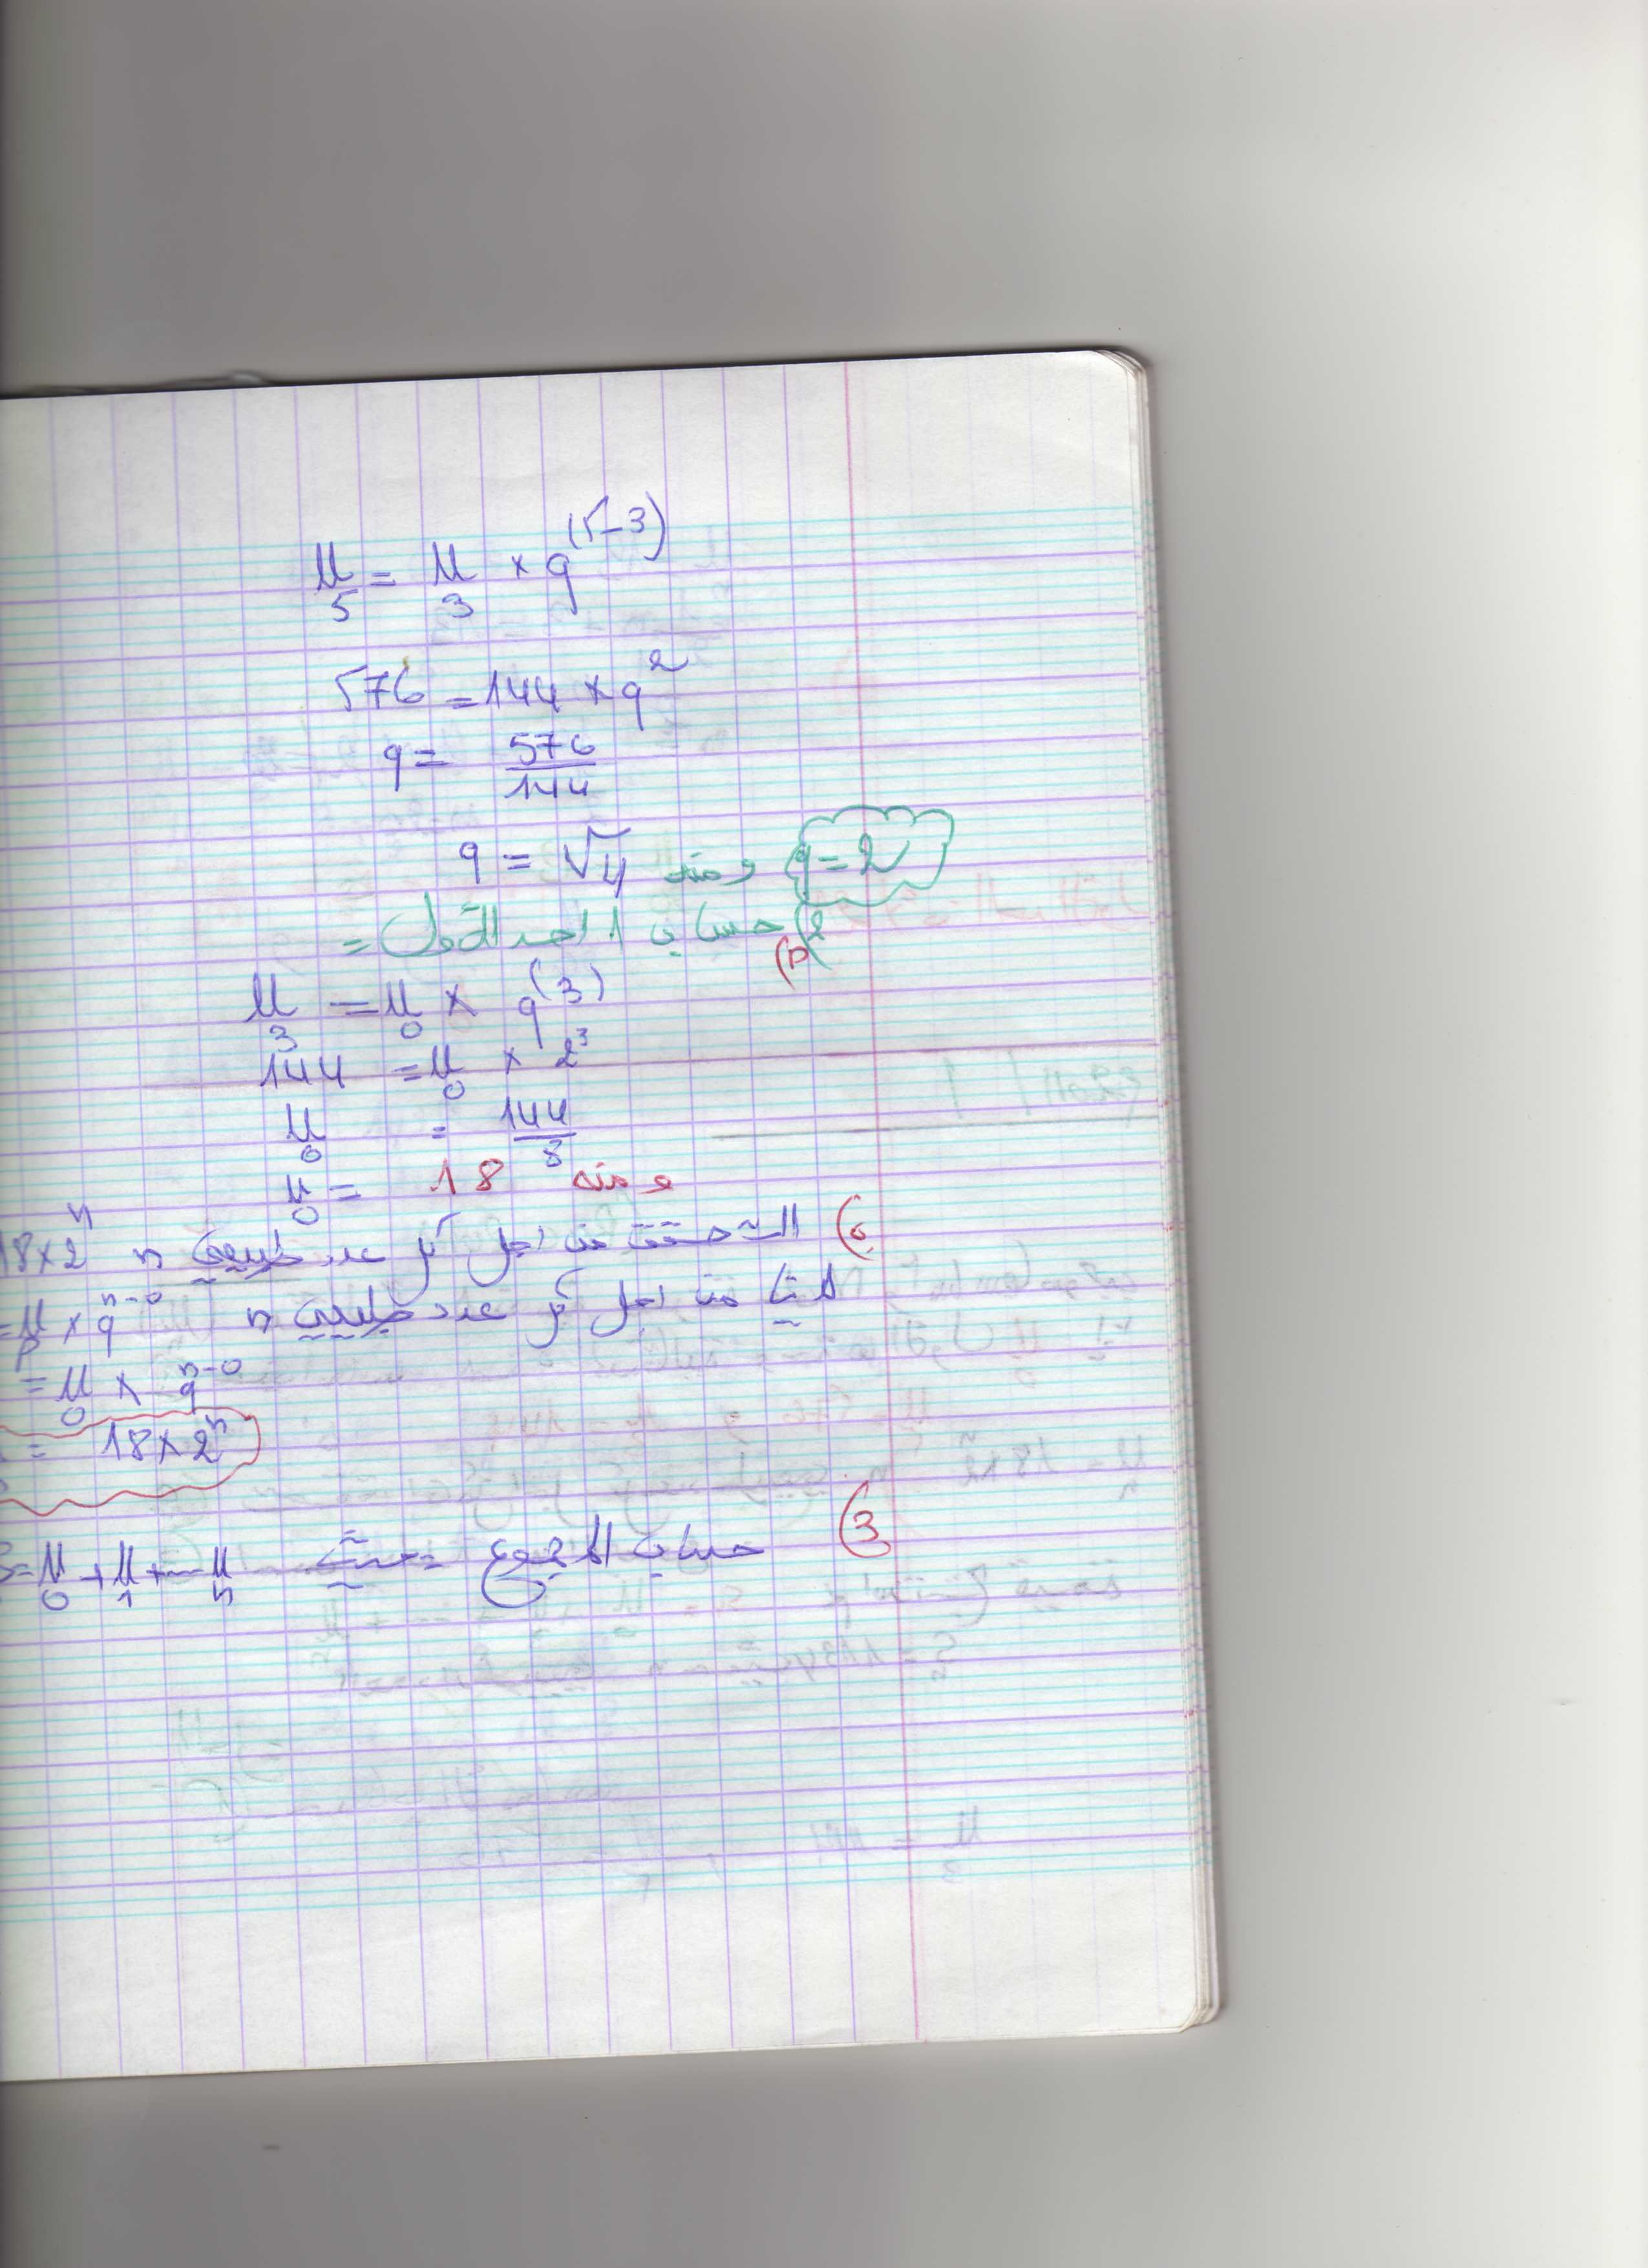 U5 = U3 × q^(5-3)
576 = 144 × q^2
q = 576/144
q = √4 ومنه q = 2
2) حساب الحد الأول =
U3 = U0 × q^(3)
144 = U0 × 2^3
U0 = 144/8
U0 = 18 ومنه
التحقق من اجل كل عدد طبيعي n 18×2^n
من اجل كل عدد طبيعي n =Up × q^n-
= U0 × q^n-0
= 18×2^n
3) حساب المجموع حيث S=U0+U1+...Un